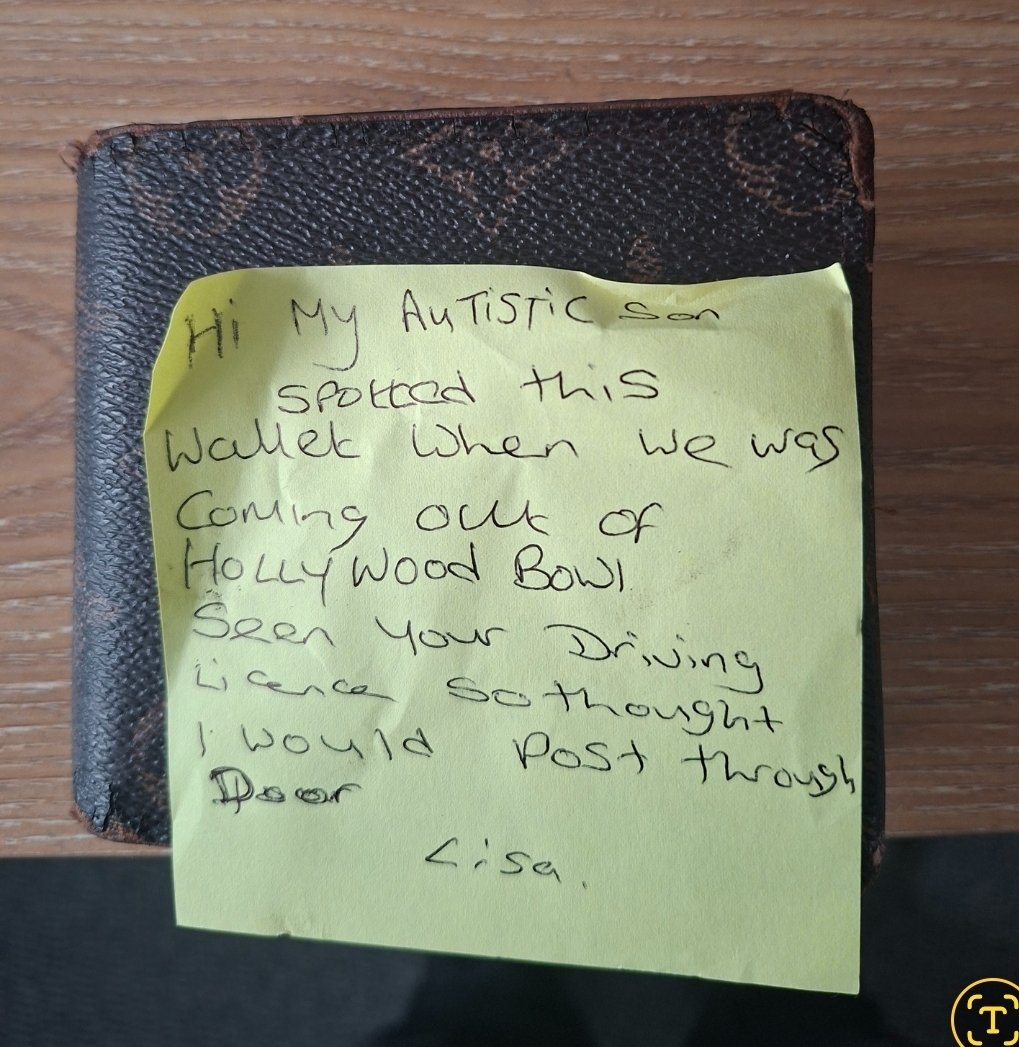 Hi My AuTiSTiC Son
spotted this
Wallet when we was
Coming out of
HOLLYWOOD BOWl
Seen your Driving
Licence so thought
I would Post through
Door
Lisa.
T